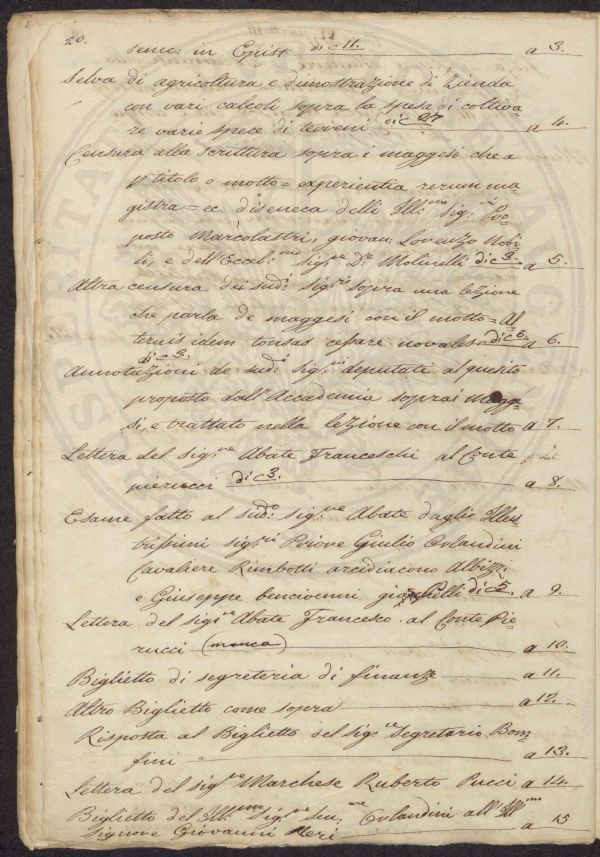 20.
senec: in Epist. di c 11. a 3.
Selva di agricoltura e dimostrazione di Zienda
con vari calcoli sopra la spesa di coltiva-
re varie spece di terreni di c 27 a 4.
Censura alla scrittura sopra i maggesi che a
p titolo o motto = experientia rerum ma-
gistra = ec. di seneca delli Ill:mi Sig:ri Pro-
posto Marcolastri, giovan: Lorenzo Nobi-
li, e dell'Eccel:mo Sig:re Dr. Molinelli di c 3. a 5.
Altra censura dei sud:i Sig:ri sopra una lezione
che parla de maggesi con il motto = Al-
ternis idem tonsas cessare novales di c 6. a 6.
di c 3.
Annotazioni de sud:i Sig:ri deputati al quesito
proposto dall'Accademia sopra i magge-
si, e trattato nella lezione con il motto a 7.
Lettera del Sig:re Abate Franceschi al Conte
pierucci di c 3. a 8.
Esame fatto al sud:o Sig:re Abate daglie Illus-
trissimi Sig:ri Priore Giulio Orlandini
Cavaliere Rimbotti arcidiacono Albizzi
e Giuseppe bencivenni di c 5. a 9.
Lettera del Sig:re Abate Francesco al Conte Pie-
rucci (manca) a 10.
Biglietto di segreteria di finanze a 11.
Altro Biglietto come sopra a 12.
Risposta al Biglietto del Sig:re Segretario Bom-
fini a 13.
Lettera del Sig:re Marchese Ruberto Pucci a 14.
Biglietto del Ill:mo Sig:re Sen:re Orlandini all'Ill:mo
Signore Giovanni Neri a 15